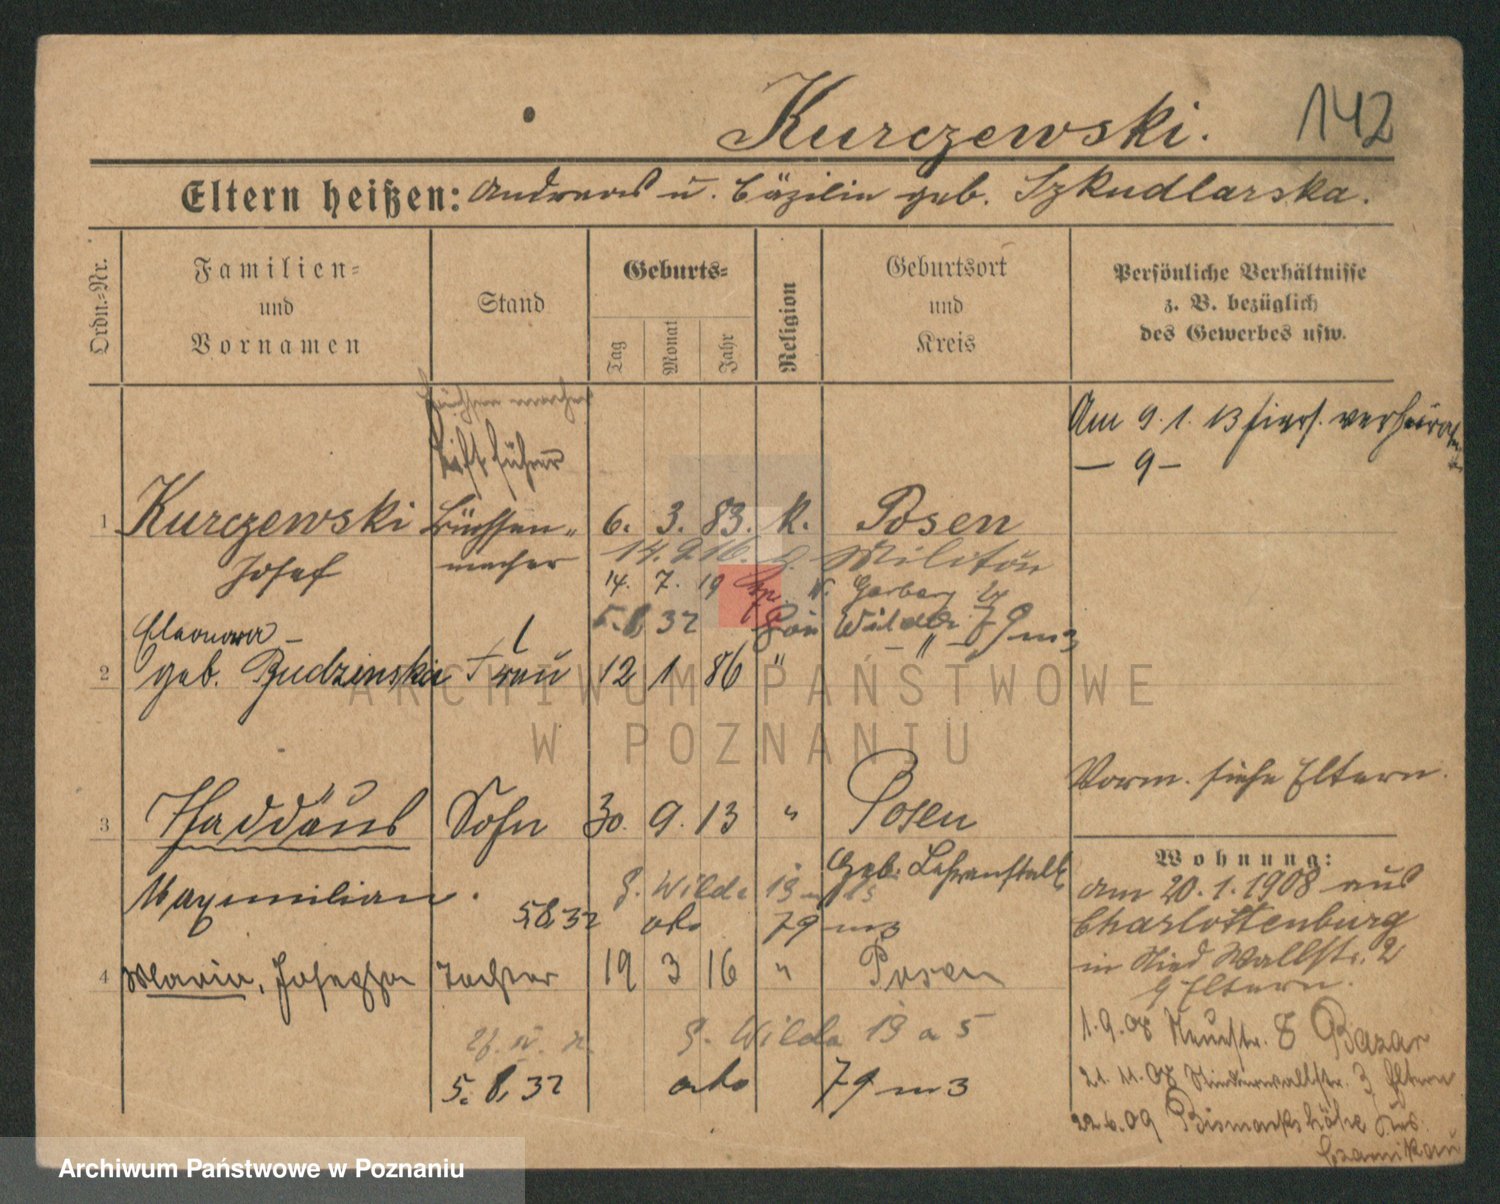 Kurczewski.
142
Eltern heißen: Andreas u. Cäzilia geb. Szkudlarska.
Ordn.-Nr.
Familien-
und
Vornamen
Stand
Geburts-
Tag
Monat
Jahr
Religion
Geburtsort
und
Kreis
Persönliche Verhältnisse
z. B. bezüglich
des Gewerbes usw.
Büchsenmacher
Am 9. 1. 13 hiers. verheiratet
— 9 —
1 Kurczewski Büchsen- 6. 3. 83. k. Posen
Josef macher
14. 2 16. z. Militär
14. 7. 19 Garbary
5.8.32 Wilda 79 m 3
Eleonora
2 geb. Budzinska Frau 12 1 86 "
ARCHIWUM PAŃSTWOWE
W POZNANIU
Vorm. siehe Eltern.
3 Thaddäus Sohn 30. 9. 13 " Posen
Geb. Lehranstalt
Maximilian. G. Wilda 19
5.8.32 79 m 3
4 Maria, Josepha Tochter 19 3 16 " Posen
G. Wilda 19 a 5
5. 8. 32 79 m 3
Wohnung:
am 20. 1. 1908 aus
Charlottenburg
in Nied Wallstr. 2
b Eltern.
1. 9. 08 Neuestr. 8 Bazar
21. 11. 08 Niederwallstr. 3 Eltern
22.6.09 Bismarkshöhe Krs.
Czarnikau
Archiwum Państwowe w Poznaniu